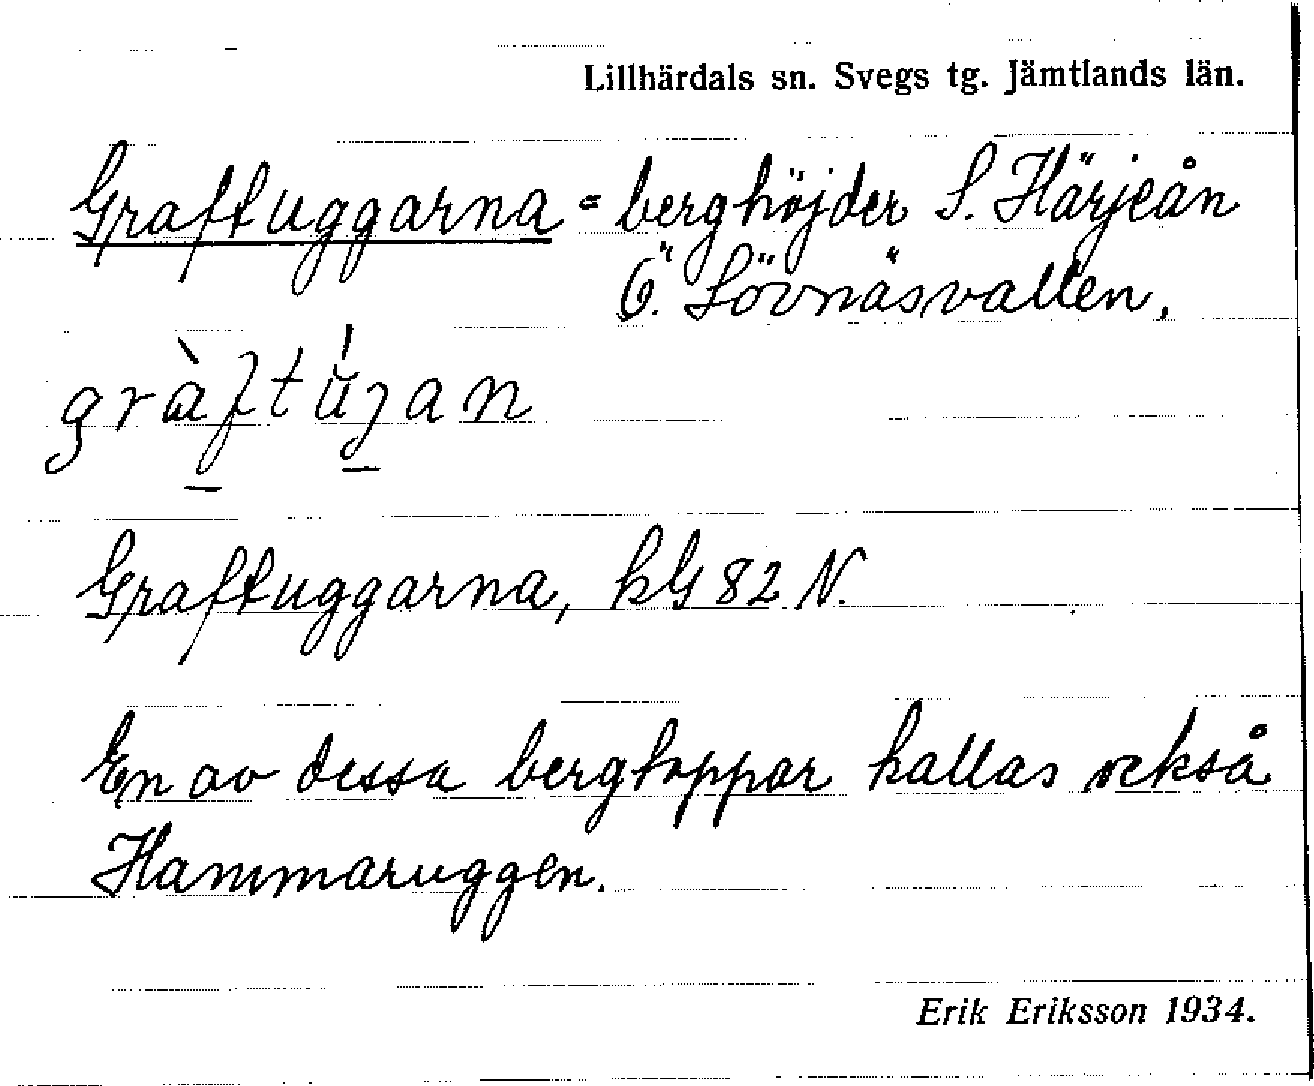 Lillhärdals sn. Svegs tg. Jämtlands län.
Graftuggarna = berghöjder S. Härjeån
Ö. Lövnäsvallen.
gràftùgan
Graftuggarna, hG 82 N.
En av dessa bergtoppar kallas också
Hammaruggen.
Erik Eriksson 1934.